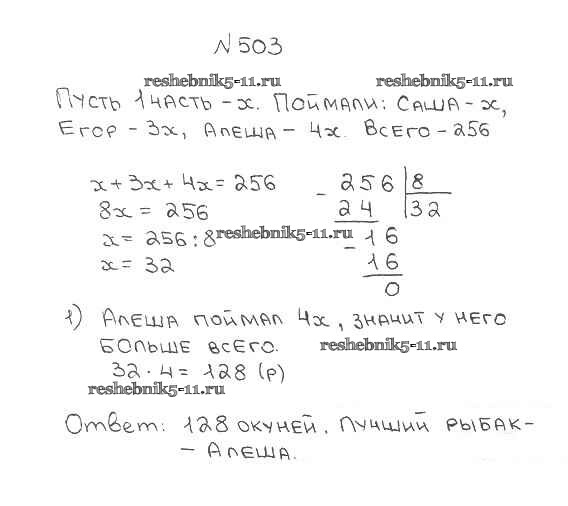 N 503
reshebnik5-11.ru reshebnik5-11.ru
Пусть 1 часть - x. Поймали: Саша - x,
Егор - 3x, Алеша - 4x. Всего - 256
x + 3x + 4x = 256
8x = 256
x = 256 : 8
x = 32
- 256 | 8
24 | 32
reshebnik5-11.ru
- 16
16
0
1) Алеша поймал 4x, значит у него
больше всего.
reshebnik5-11.ru
32 · 4 = 128 (р)
reshebnik5-11.ru
Ответ: 128 окуней. Лучший рыбак -
- Алеша.